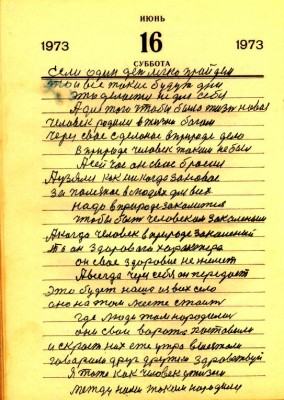 ИЮНЬ
1973 16 1973
СУББОТА
Если один ден легко пройдеш
то и все такие будут дни
Эты делаеш не для себя
А для того чтобы была жизнь новая
Человек родился в жизни богом
Через свое сделоное в природе дело
В природе человек таким не был
А сейчас он свое бросил
А узяли как никогда за новое
За полезное в людях для всех
надо в природе закалится
чтобы быт человеком закаленым
А когда человек в природе закаленый
То он здорового характера
он свое здоровие не
А всегда через себя он передает
Это будет наше из всех село
оно на этом месте стоит
где люди этом народилис
они свои варота поставили
и скрозь них эти утро
говорили друг другу здравствуй
Я тоже как человек
между ними таком народилс